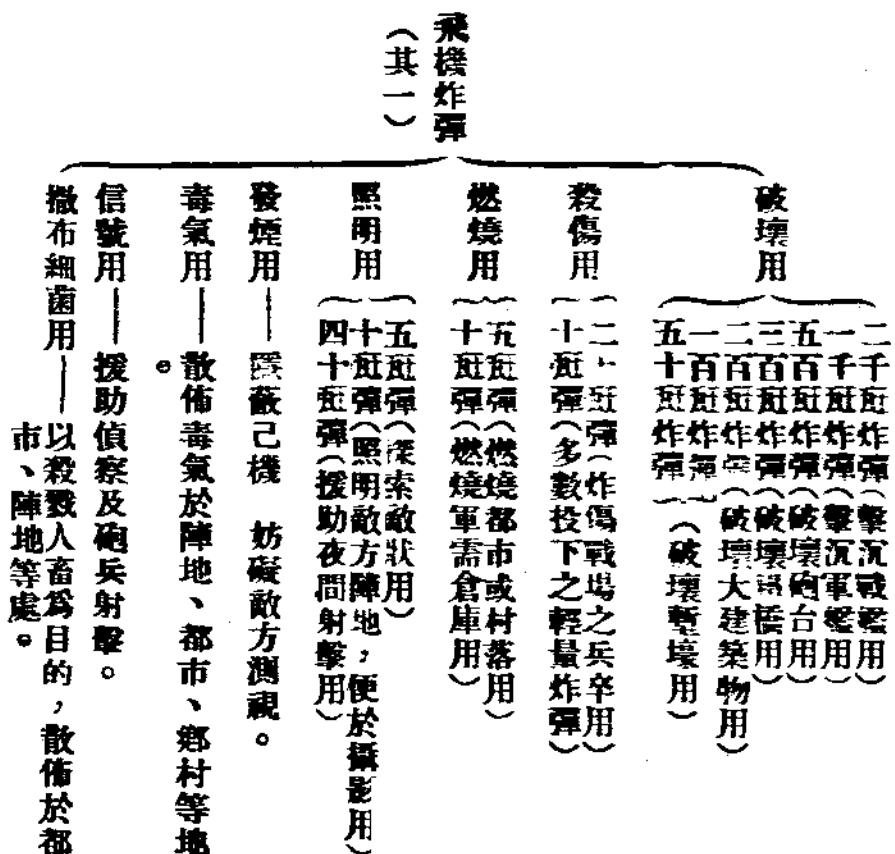 飛機炸彈
（其一）
破壞用
二千瓩炸彈（擊沉戰艦用）
一千瓩炸彈（擊沉軍艦用）
五百瓩炸彈（破壞砲台用）
三百瓩炸彈（破壞橋用）
二百瓩炸彈（破壞大建築物用）
一百瓩炸彈
五十瓩炸彈
（破壞塹壕用）
殺傷用
二十瓩彈（炸傷戰場之兵卒用）
十瓩彈（多數投下之輕量炸彈）
燃燒用
五瓩彈（燃燒都市或村落用）
十瓩彈（燃燒軍需倉庫用）
照明用
五瓩彈（探索敵狀用）
十瓩彈（照明敵方陣地，便於攝影用）
四十瓩彈（援助夜間射擊用）
發煙用——隱蔽己機　妨礙敵方測視。
毒氣用——散佈毒氣於陣地、都市、鄉村等地
。
信號用——援助偵察及砲兵射擊。
撒布細菌用——以殺戮人畜爲目的，散佈於都
市、陣地等處。